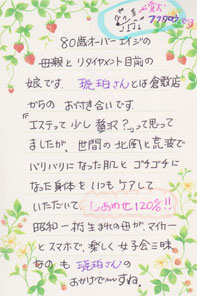 80歳オーバーエイジの
母親とリタイヤメント目前の
娘です。琥珀さんとは倉敷店
からのお付き合いです。
「エステって少し贅沢？」って思って
ましたが、世間の北風と荒波で
バリバリになった肌とゴチゴチに
なった身体をいつもケアして
いただいて しあわせ120%!!
昭和一桁生まれの母が、マイカー
とスマホで、楽しく女子会三昧
なのも琥珀さんの
おかげで〜すね。